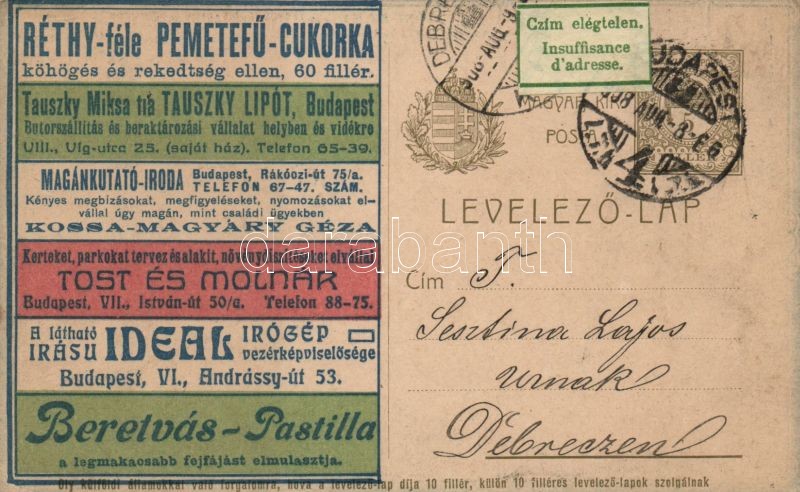 RÉTHY-féle PEMETEFŰ-CUKORKA
köhögés és rekedtség ellen, 60 fillér.
Tauszky Miksa trá TAUSZKY LIPÓT, Budapest
Butorszállitás és beraktározási vállalat helyben és vidékre
VIII., Vig-utca 25. (saját ház). Telefon 65-39.
MAGÁNKUTATÓ-IRODA Budapest, Rákóczi-út 75/a.
TELEFON 67-47. SZÁM.
Kényes megbizásokat, megfigyeléseket, nyomozásokat el-
vállal úgy magán, mint családi ügyekben
KOSSA-MAGYARY GÉZA
Kerteket, parkokat tervez és alakit, növénydiszitéseket elvállal
TOST ÉS MOLNÁR
Budapest, VII., István-út 50/a. Telefon 88-75.
A látható IRÁSU IDEAL IRÓGÉP
vezérképviselősége
Budapest, VI., Andrássy-út 53.
Beretvás-Pastilla
a legmakacsabb fejfájást elmulasztja.
Czím elégtelen.
Insuffisance
d'adresse.
DEBRE
908 AUG
BUDAPEST
908 AUG
MAGYAR KIR.
POSTA
LEVELEZŐ-LAP
Cím T.
Sesztina Lajos
urnak
Debreczen
Oly külföldi államokkal való forgalomra, hová a levelező-lap díja 10 fillér, külön 10 filléres levelező-lapok szolgálnak
darabanth